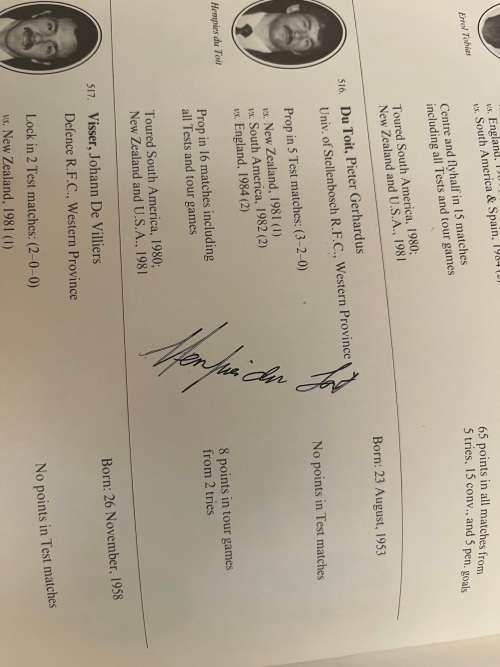 Errol Tobias
vs. England,
vs. South America & Spain, 1984 (2)
Centre and flyhalf in 15 matches
including all Tests and tour games
65 points in all matches from
5 tries, 15 conv., and 5 pen. goals
Toured South America, 1980;
New Zealand and U.S.A., 1981
Hempies du Toit
516. Du Toit, Pieter Gerhardus
Born: 23 August, 1953
Univ. of Stellenbosch R.F.C., Western Province
Prop in 5 Test matches: (3–2–0)
No points in Test matches
vs. New Zealand, 1981 (1)
vs. South America, 1982 (2)
vs. England, 1984 (2)
Prop in 16 matches including
all Tests and tour games
8 points in tour games
from 2 tries
Toured South America, 1980;
New Zealand and U.S.A., 1981
Hempies du Toit
517. Visser, Johann De Villiers
Born: 26 November, 1958
Defence R.F.C., Western Province
Lock in 2 Test matches: (2–0–0)
No points in Test matches
vs. New Zealand, 1981 (1)